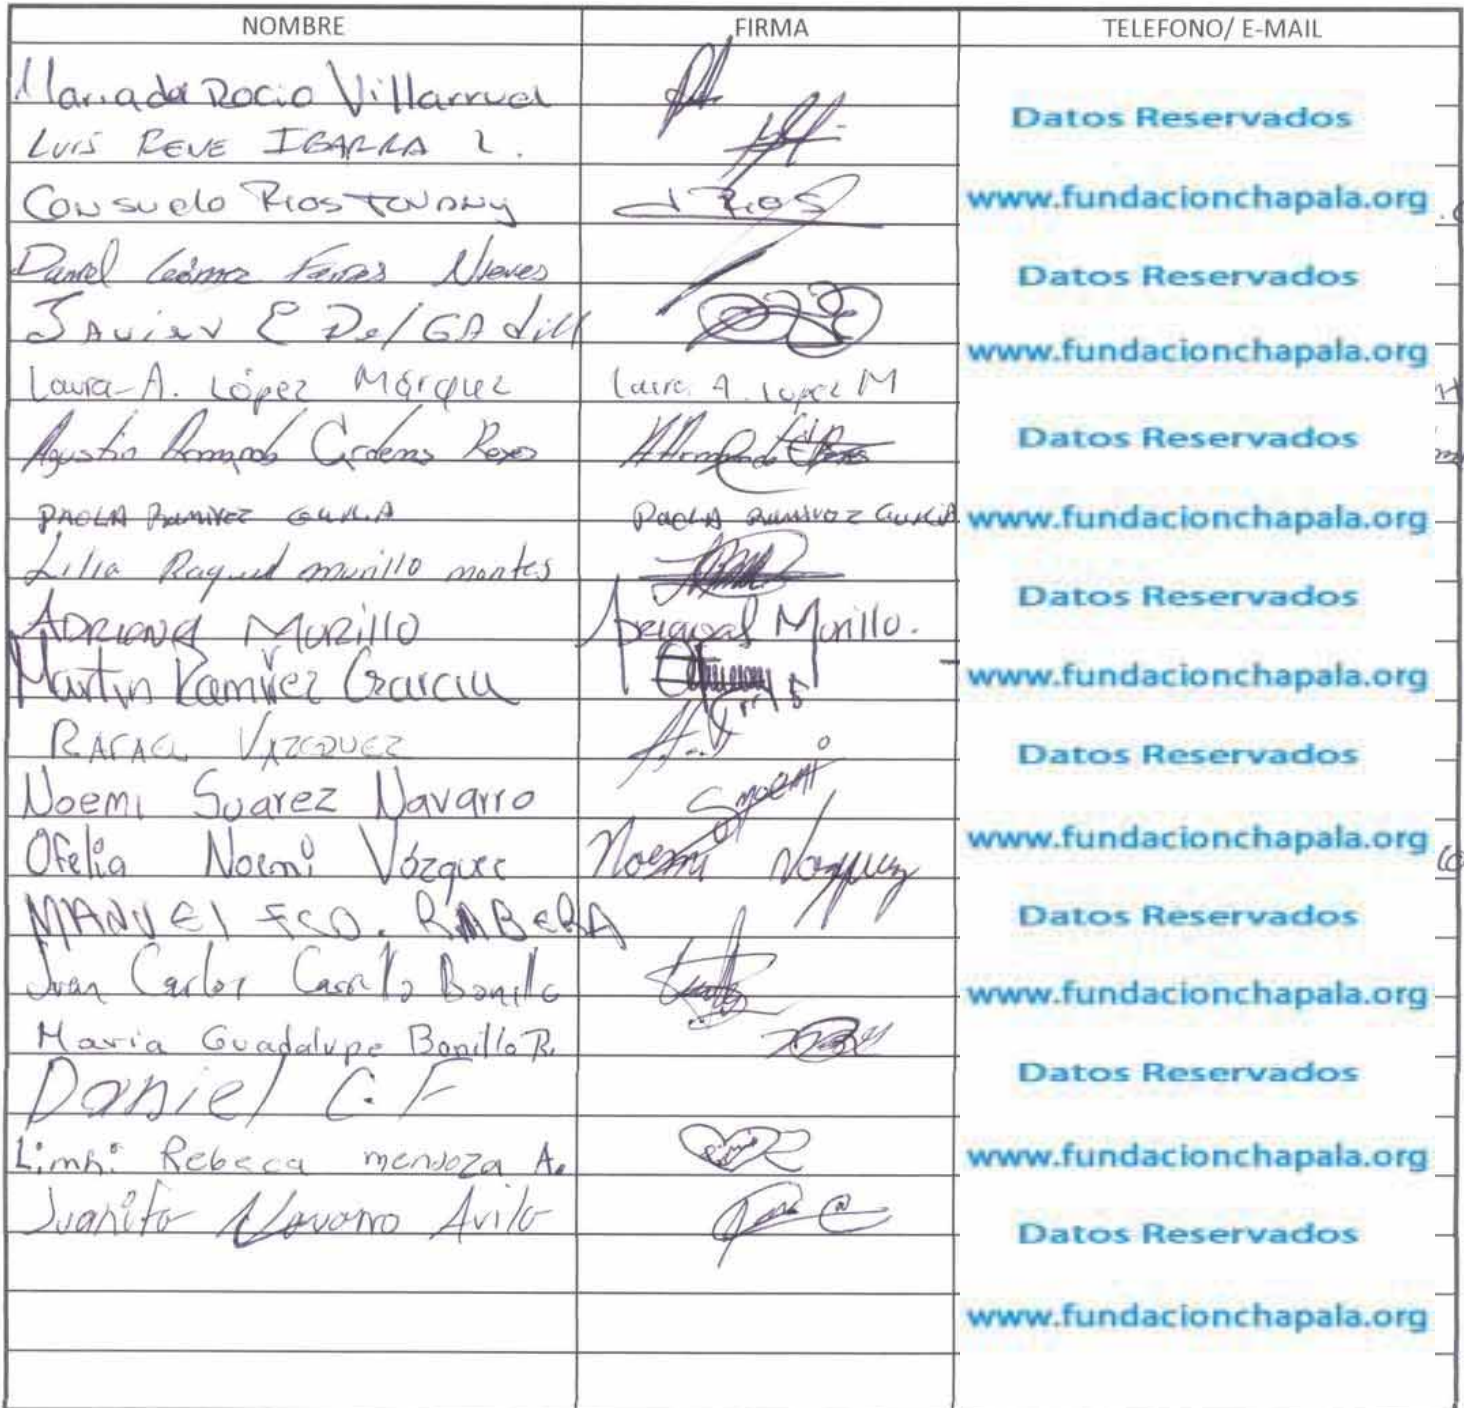 NOMBRE FIRMA TELEFONO/ E-MAIL
Maria del Rocio Villarruel
Datos Reservados
LUIS RENE IBARRA L.
Consuelo Rios Tovany J Rios www.fundacionchapala.org
Daniel Nieves Datos Reservados
Javier E Delgadill
www.fundacionchapala.org
Laura A. López Márquez Laura A. Lopez M
Agustin Armando Cardenas Reyes Datos Reservados
PAOLA Ramirez Paola Ramirez www.fundacionchapala.org
Lilia Raquel murillo montes
Datos Reservados
ADRIANA MURILLO Murillo.
Martin Ramirez Garcia www.fundacionchapala.org
RAFAEL VAZQUEZ Datos Reservados
Noemi Suarez Navarro Snoemi
Ofelia Noemi Vázquez Noemi Vazquez www.fundacionchapala.org
MANUEl FCO. RABERA Datos Reservados
Juan Carlos Carrillo Bonilla www.fundacionchapala.org
Maria Guadalupe Bonilla R.
Daniel C. F Datos Reservados
Limhi Rebeca mendoza A. www.fundacionchapala.org
Juanita Navarro Avila Datos Reservados
www.fundacionchapala.org